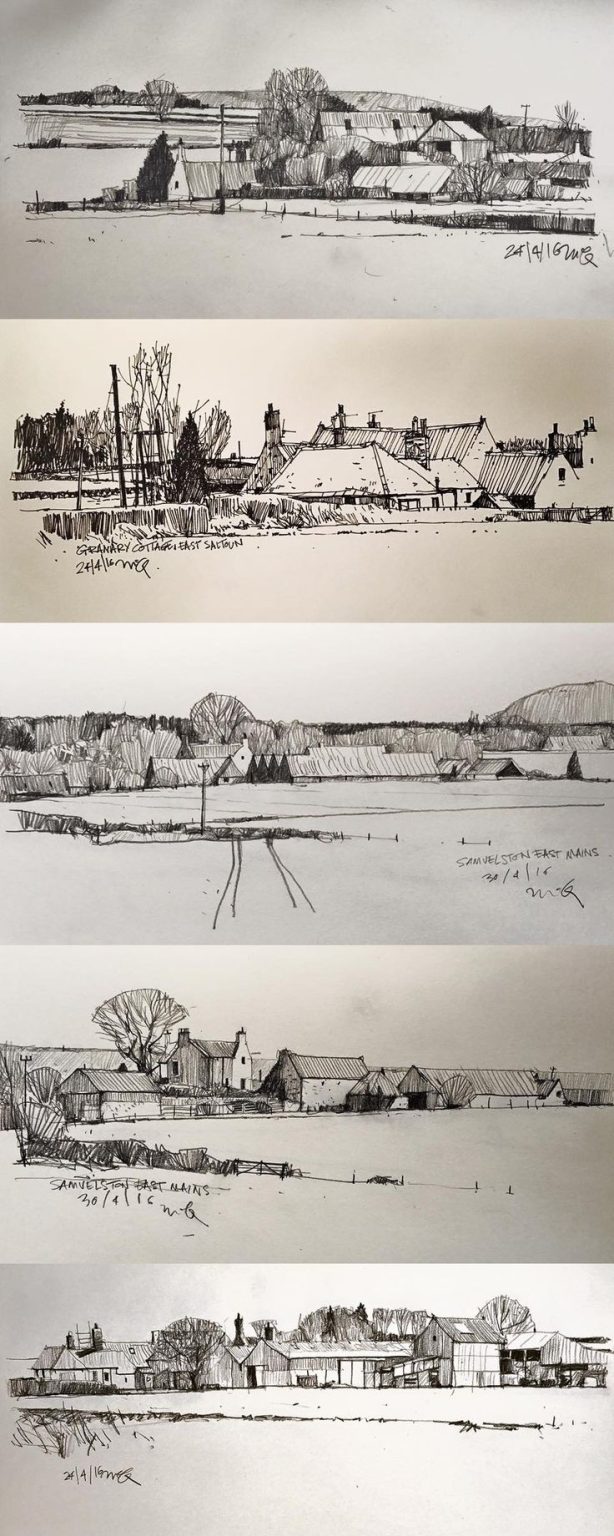 24/4/16 McQ
GRANARY COTTAGES EAST SALTOUN
24/4/16 McQ.
SAMUELSTON EAST MAINS
30/4/16
McQ
SAMUELSTON EAST MAINS
30/4/16
McQ
24/4/16 McQ